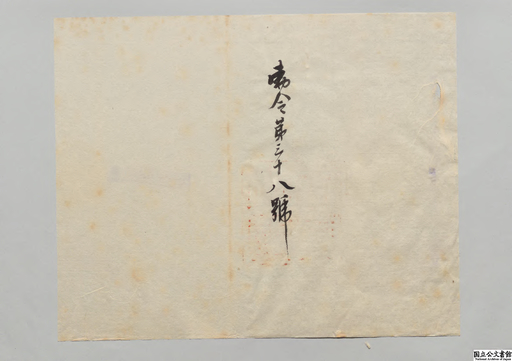 勅令第三十八號
国立公文書館
National Archives of Japan